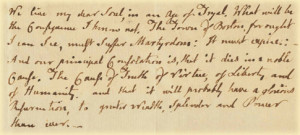 We live my dear Soul, in an Age of Tryal. What will be
the Consequence I know not. The Town of Boston, for ought
I can see, must suffer Martyrdom: It must expire:
And our principal Consolation is, that it dies in a noble
Cause. The Cause of Truth, of Virtue, of Liberty and
of Humanity, and that it will probably have a glorious
Reformation, to greater Wealth, Splendor and Power
than ever.